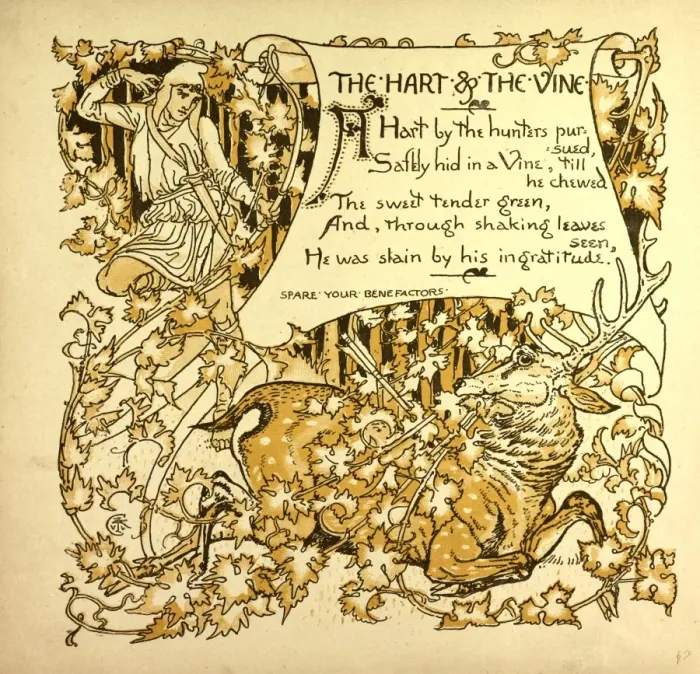 THE·HART·&·THE·VINE·
A Hart by the hunters pur-
sued,
Safely hid in a Vine, 'till
he chewed
The sweet tender green,
And, through shaking leaves
seen,
He was slain by his ingratitude.
SPARE·YOUR·BENEFACTORS·